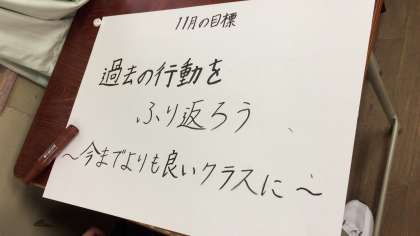 11月の目標
過去の行動を
ふり返ろう
～今までよりも良いクラスに～